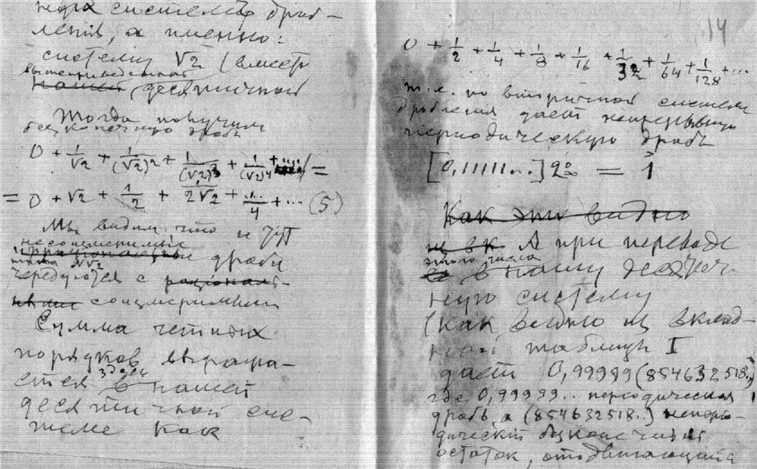 систему дроб-
ления, а именно:
систему √2 (вместо
вышеприведенной
нашей десятичной
Тогда получим
бесконечную дробь
0 + 1/√2 + 1/(√2)² + 1/(√2)³ + 1/(√2)⁴ + .... =
= 0 + √2 + 1/2 + 1/2√2 + 1/4 + ... (5)
Мы видим что и тут
несоизмеримые
дроби
чередуются с
соизмеримыми
Сумма четных
порядков выража-
ется здесь в нашей
десятичной сис-
теме как
14
0 + 1/2 + 1/4 + 1/8 + 1/16 + 1/32 + 1/64 + 1/128 + ...
т.е. по вторичной системе
дробления дает непрерывную
периодическую дробь
[0,11111..] = 1
Как это видно
А при переводе
этого числа
в нашу десятич-
ную систему
(как видно из вклад-
ной таблицы I
дает 0,99999(854632518..)
где 0,99999.. периодическая
дробь, а (854632518..) непери-
одический бесконечный
остаток, отодвигающийся